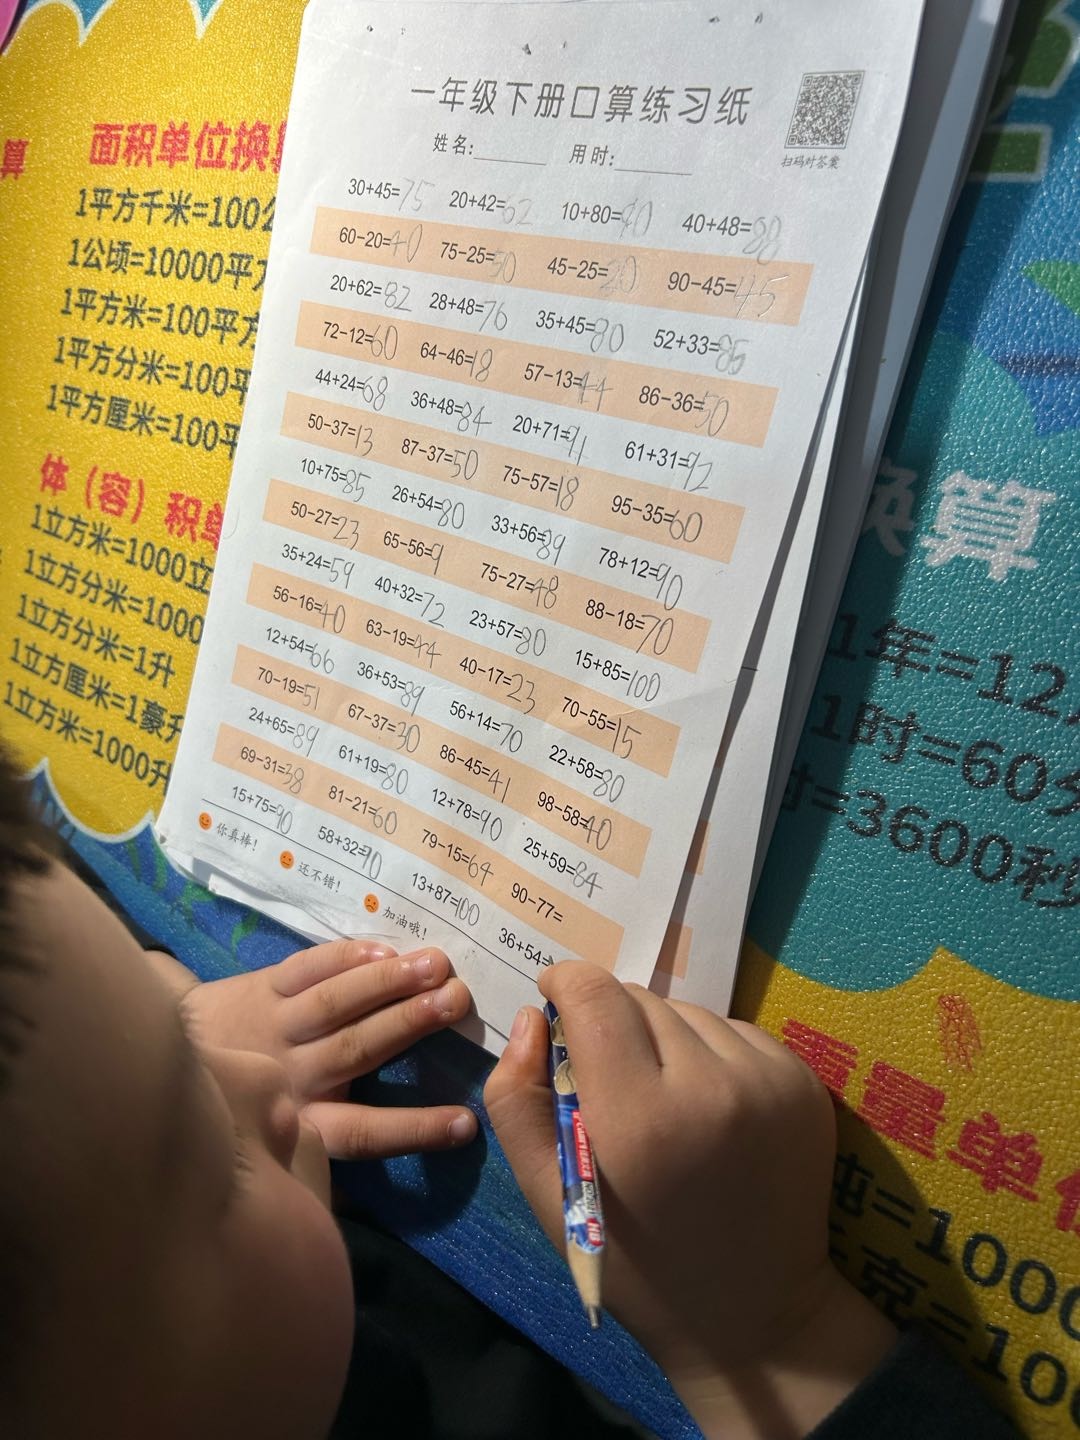 一年级下册口算练习纸
姓名: 用时:
扫码对答案
30+45=75 20+42=62 10+80=90 40+48=88
60-20=40 75-25=50 45-25=20 90-45=45
20+62=82 28+48=76 35+45=80 52+33=85
72-12=60 64-46=18 57-13=44 86-36=50
44+24=68 36+48=84 20+71=91 61+31=92
50-37=13 87-37=50 75-57=18 95-35=60
10+75=85 26+54=80 33+56=89 78+12=90
50-27=23 65-56=9 75-27=48 88-18=70
35+24=59 40+32=72 23+57=80 15+85=100
56-16=40 63-19=44 40-17=23 70-55=15
12+54=66 36+53=89 56+14=70 22+58=80
70-19=51 67-37=30 86-45=41 98-58=40
24+65=89 61+19=80 12+78=90 25+59=84
69-31=38 81-21=60 79-15=64 90-77=
15+75=90 58+32=90 13+87=100 36+54=
你真棒! 还不错! 加油哦!
算
面积单位换
1平方千米=100公
1公顷=10000平方
1平方米=100平方
1平方分米=100平
1平方厘米=100平
体（容）积单
1立方米=1000立
1立方分米=1000
1立方分米=1升
1立方厘米=1毫升
1立方米=1000升
换算
1年=12
1时=60分
时=3600秒
重量单位
吨=1000
克=100
HB